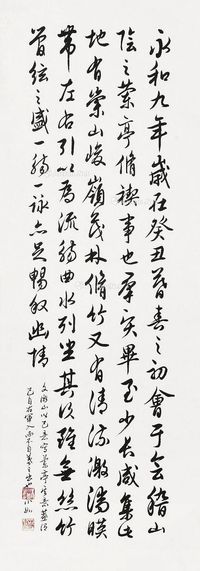 永和九年歲在癸丑暮春之初會于會稽山
陰之蘭亭脩禊事也羣賢畢至少長咸集此
地有崇山峻嶺茂林脩竹又有清流激湍映
帶左右引以為流觴曲水列坐其次雖無絲竹
管弦之盛一觴一詠亦足暢敘幽情